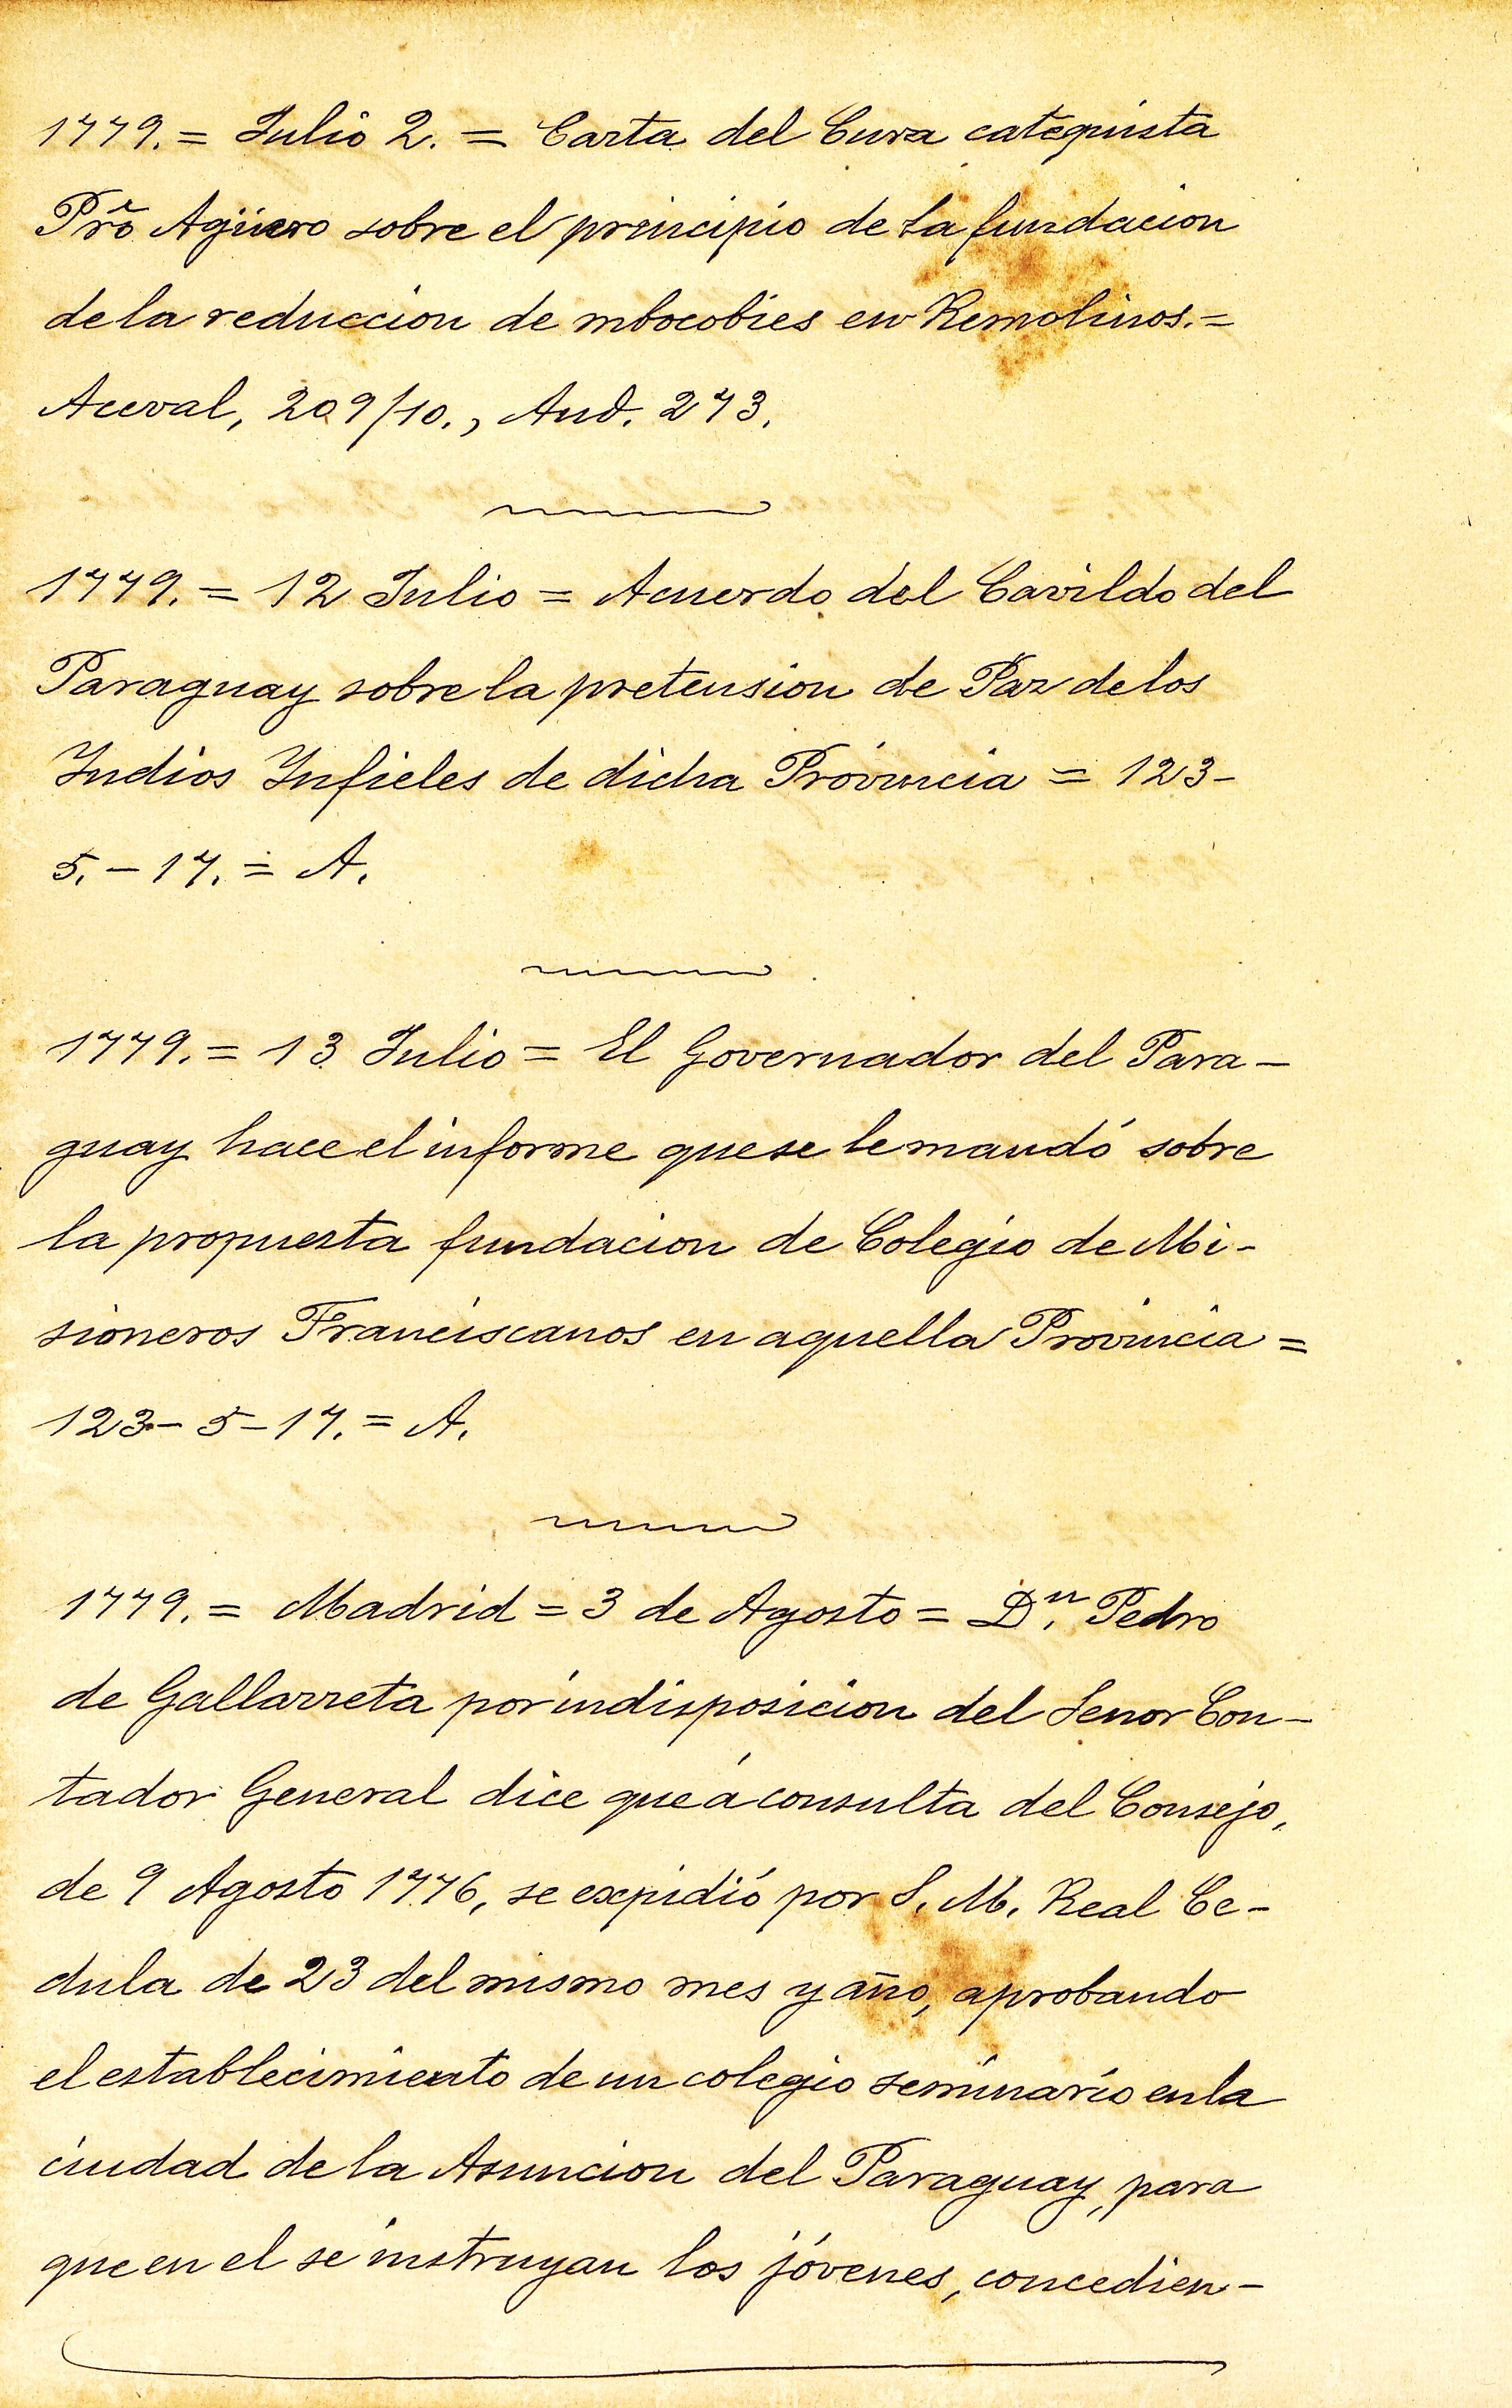 1779. = Julio 2. = Carta del Cura catequista
Pr̃o Agüero sobre el principio de la fundacion
de la reduccion de mbocobies en Remolinos. =
Aceval, 209/10., And. 273.
1779. = 12 Julio = Acuerdo del Cavildo del
Paraguay sobre la pretension de Paz de los
Indios Infieles de dicha Provincia = 123-
5. - 17. = A.
1779. = 13 Julio = El Governador del Para-
guay hace el informe que se le mandó sobre
la propuesta fundacion de Colegio de Mi-
sioneros Franciscanos en aquella Provincia =
123 - 5 - 17. = A.
1779. = Madrid = 3 de Agosto = Dn. Pedro
de Gallarreta por indisposicion del Senor Con-
tador General dice que á consulta del Consejo,
de 9 Agosto 1776, se expidió por S. M. Real Ce-
dula de 23 del mismo mes y año, aprobando
el establecimiento de un colegio seminario en la
ciudad de la Asuncion del Paraguay, para
que en el se instruyan los jóvenes, concedien-